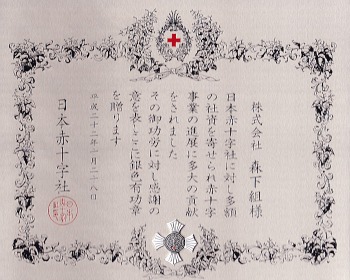 株式会社 森下組様
日本赤十字社に対し多額
の社資を寄せられ赤十字
事業の進展に多大の貢献
をされました
その御功労に対し感謝の
意を表しここに銀色有功章
を贈ります
平成二十二年一月二十八日
日本赤十字社